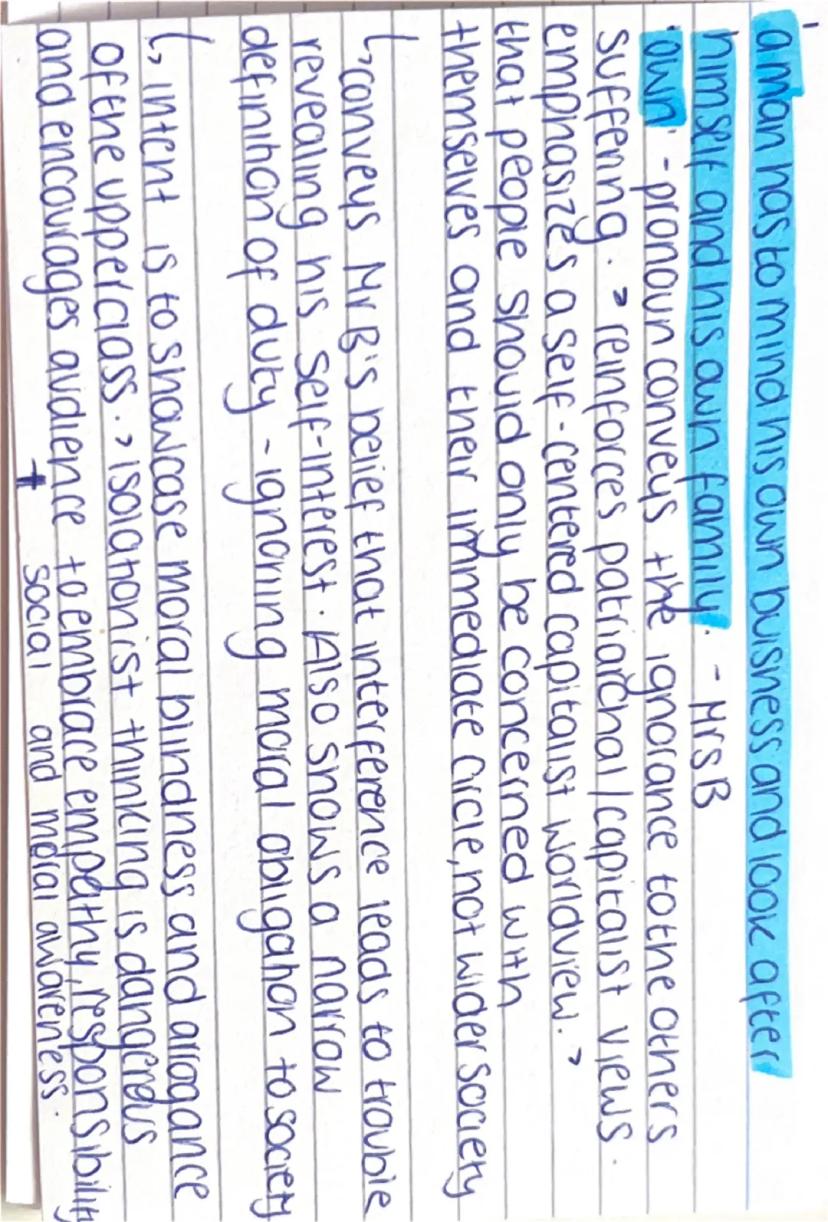 'a man has to mind his own buisness and look after
himself and his own family. - Mrs B
'own' - pronoun conveys the ignorance to the others
suffering. > reinforces patriarchal/capitalist views.
emphasizes a self-centered capitalist worldview. >
that people should only be concerned with
themselves and their immediate circle, not wider society
↳ conveys Mr B's belief that interference leads to trouble
revealing his self-interest. Also shows a narrow
definition of duty - ignoring moral obligation to society
↳ intent is to showcase moral blindness and arrogance
of the upperclass. > isolationist thinking is dangerous
and encourages audience to embrace empathy, responsibility
+ social and moral awareness.